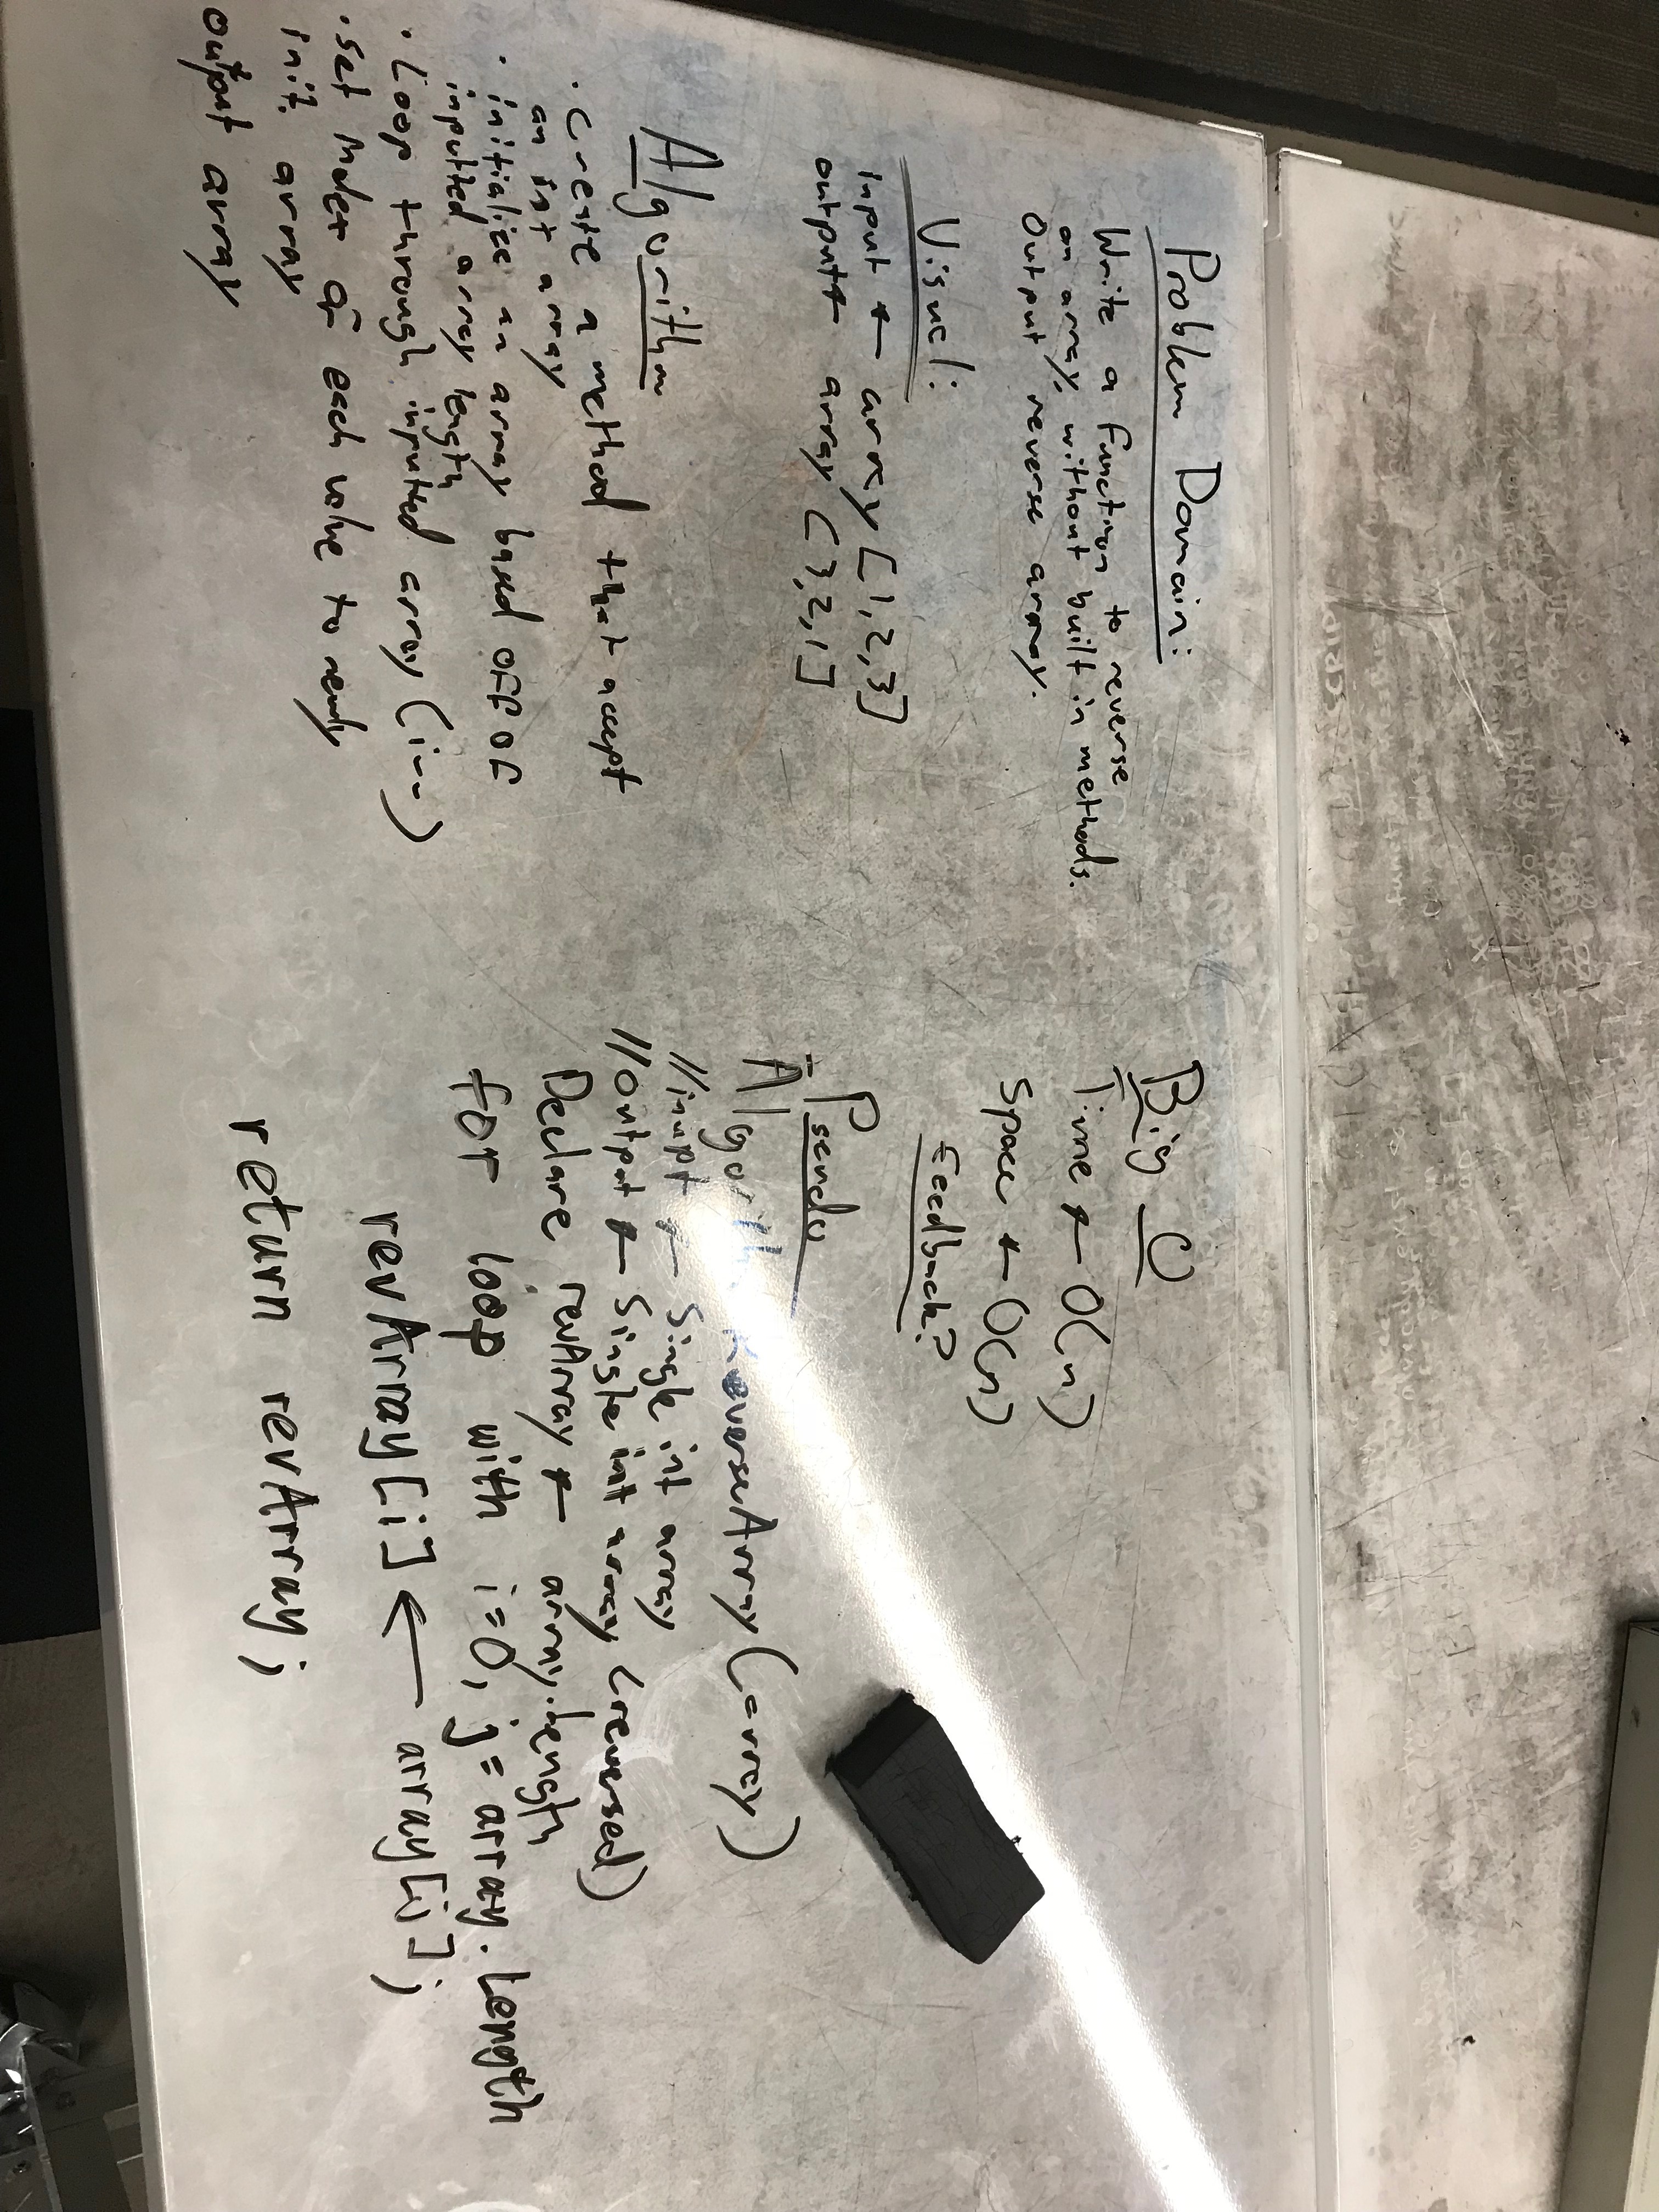 Problem Domain:
Write a function to reverse
an array, without built in methods.
Output reverse array.
Visual:
input ← array [1,2,3]
output← array [3,2,1]
Algorithm
· Create a method that accept
an int array
· initialize an array based off of
inputted array length
· Loop through inputted array (i--)
· Set index of each value to newly
init. array
output array
Big O
Time ← O(n)
Space ← O(n)
Feedback?
Pseudo
Algorithm ReverseArray(array)
//inupt ← Single int array
//output ← Single int array (reversed)
Declare revArray ← array.Length
for loop with i=0, j= array.Length
revArray[i] ← array[j];
return revArray;